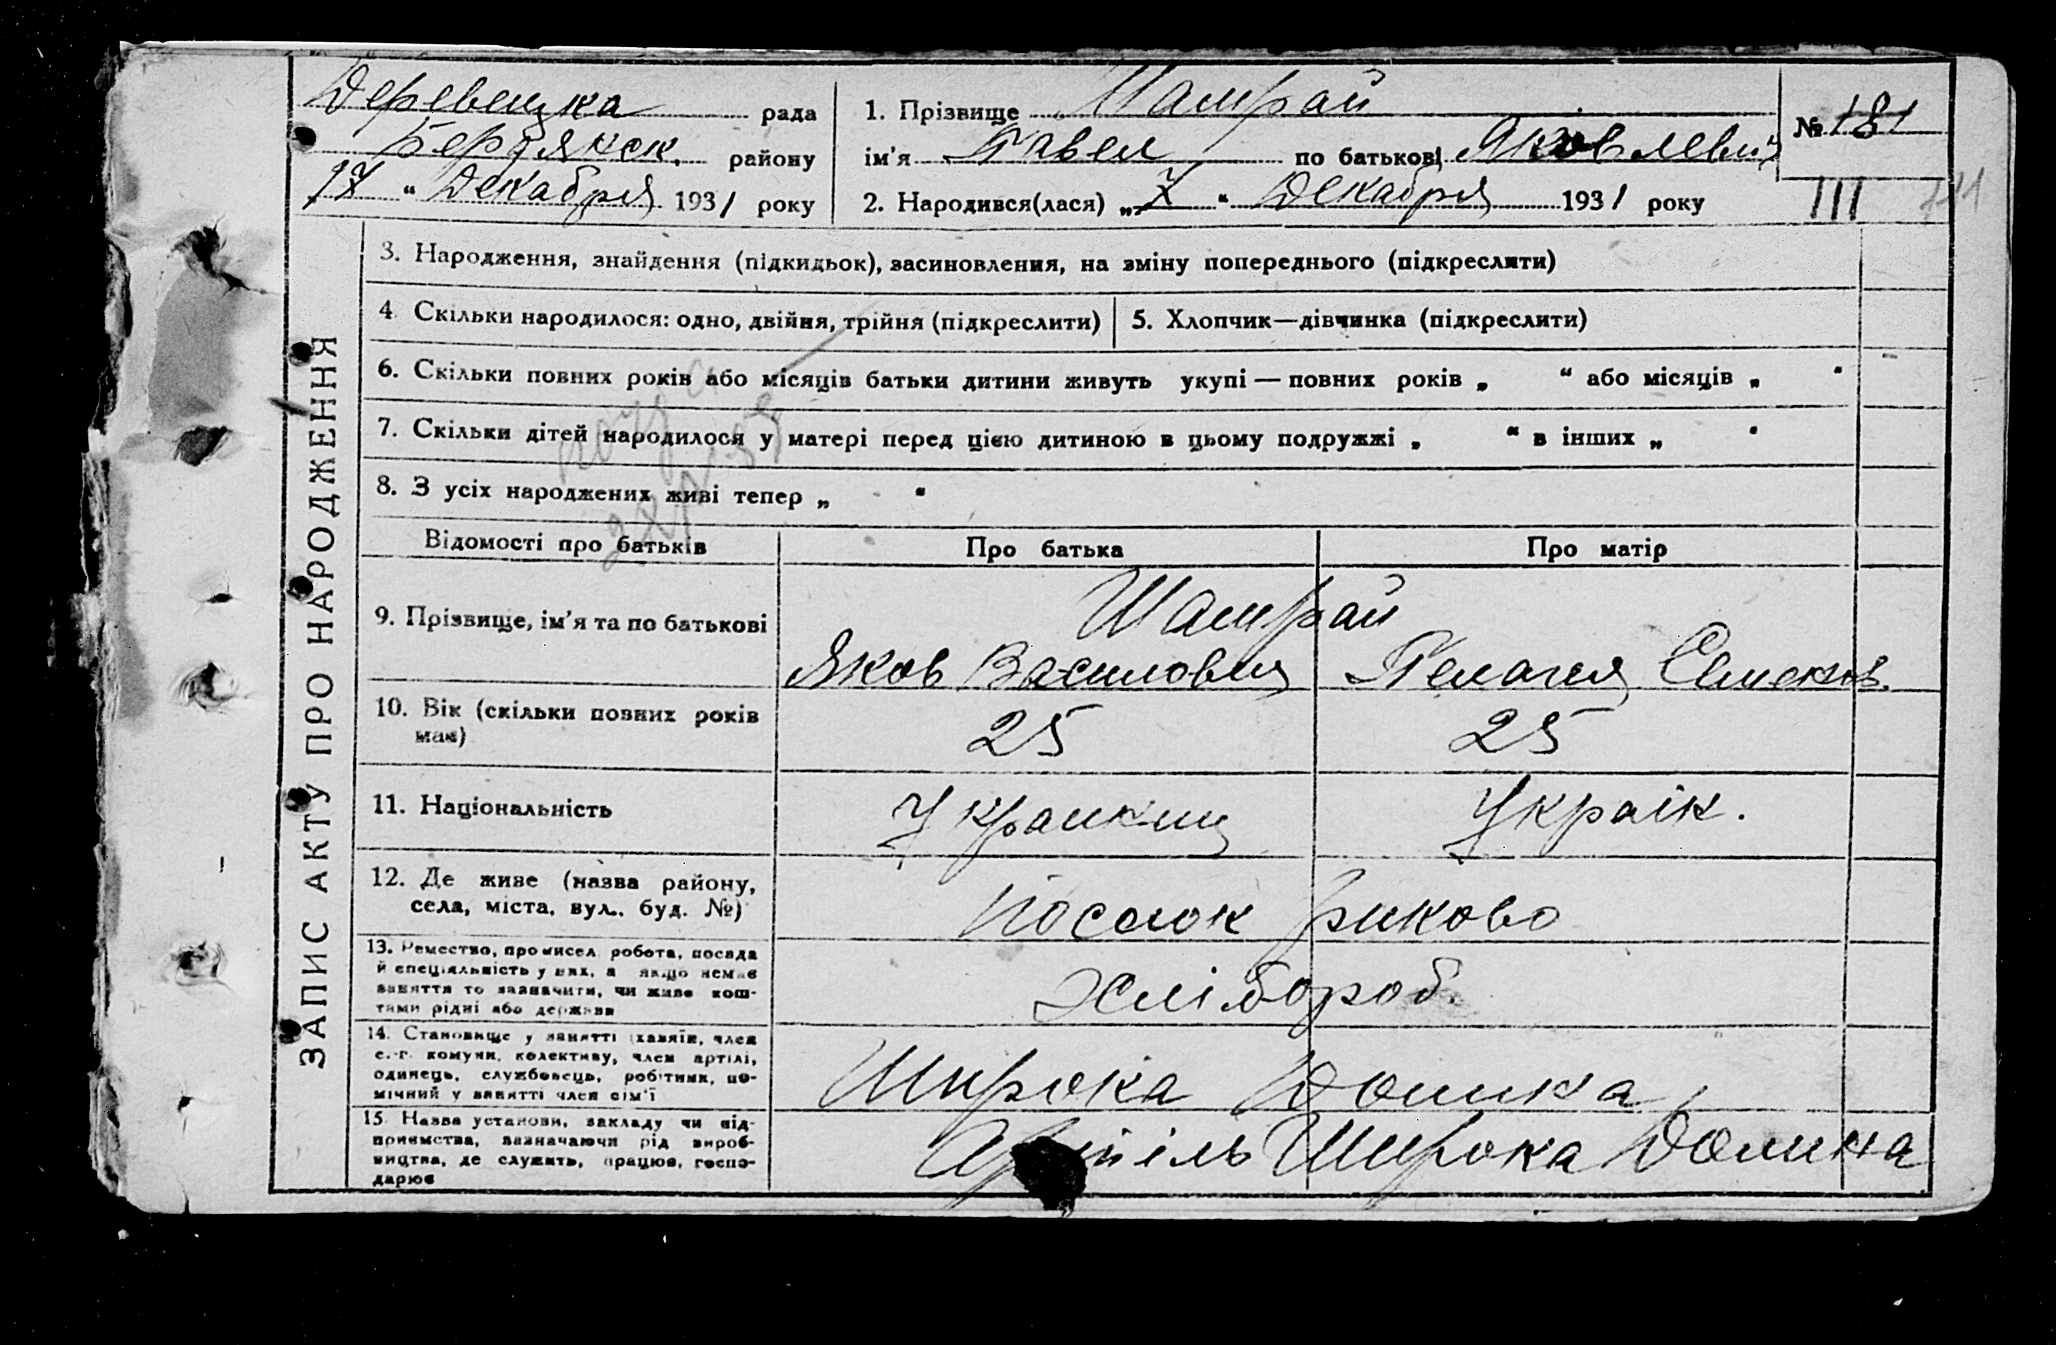 Деревецка рада
Бердянск. району
17 " Декабря 1931 року
1. Прізвище Шамрай
ім'я Павел по батькові Яковлевич
2. Народився(лася) „ 7 " Декабря 1931 року
№ 181
III
ЗАПИС АКТУ ПРО НАРОДЖЕННЯ
3. Народження, знайдення (підкидьок), засиновлення, на зміну попереднього (підкреслити)
4. Скільки народилося: одно, двійня, трійня (підкреслити) 5. Хлопчик—дівчинка (підкреслити)
6. Скільки повних років або місяців батьки дитини живуть укупі — повних років „ " або місяців „ "
7. Скільки дітей народилося у матері перед цією дитиною в цьому подружжі „ " в інших „ "
8. З усіх народжених живі тепер „ "
Відомості про батьків Про батька Про матір
9. Прізвище, ім'я та по батькові
Шамрай
Яков Василович Пелагея Семенов.
10. Вік (скільки повних років має)
25 25
11. Національність
Украинец Україн.
12. Де живе (назва району,
села, міста, вул., буд. №)
Поселок Риково
13. Ремество, промисел, робота, посада
й спеціяльність у них, а якщо немає
заняття то зазначити, чи живе кош-
тами рідні або держави
Хлібороб.
14. Становище у занятті (хазяїн, член
с.-г. комуни, колективу, член артілі,
одинець, службовець, робітник, по-
мічний у занятті член сім'ї
Широка Долина
15. Назва установи, закладу чи під-
приємства, зазначаючи рід вироб-
ництва, де служить, працює, госпо-
дарює
Артіль Широка Долина